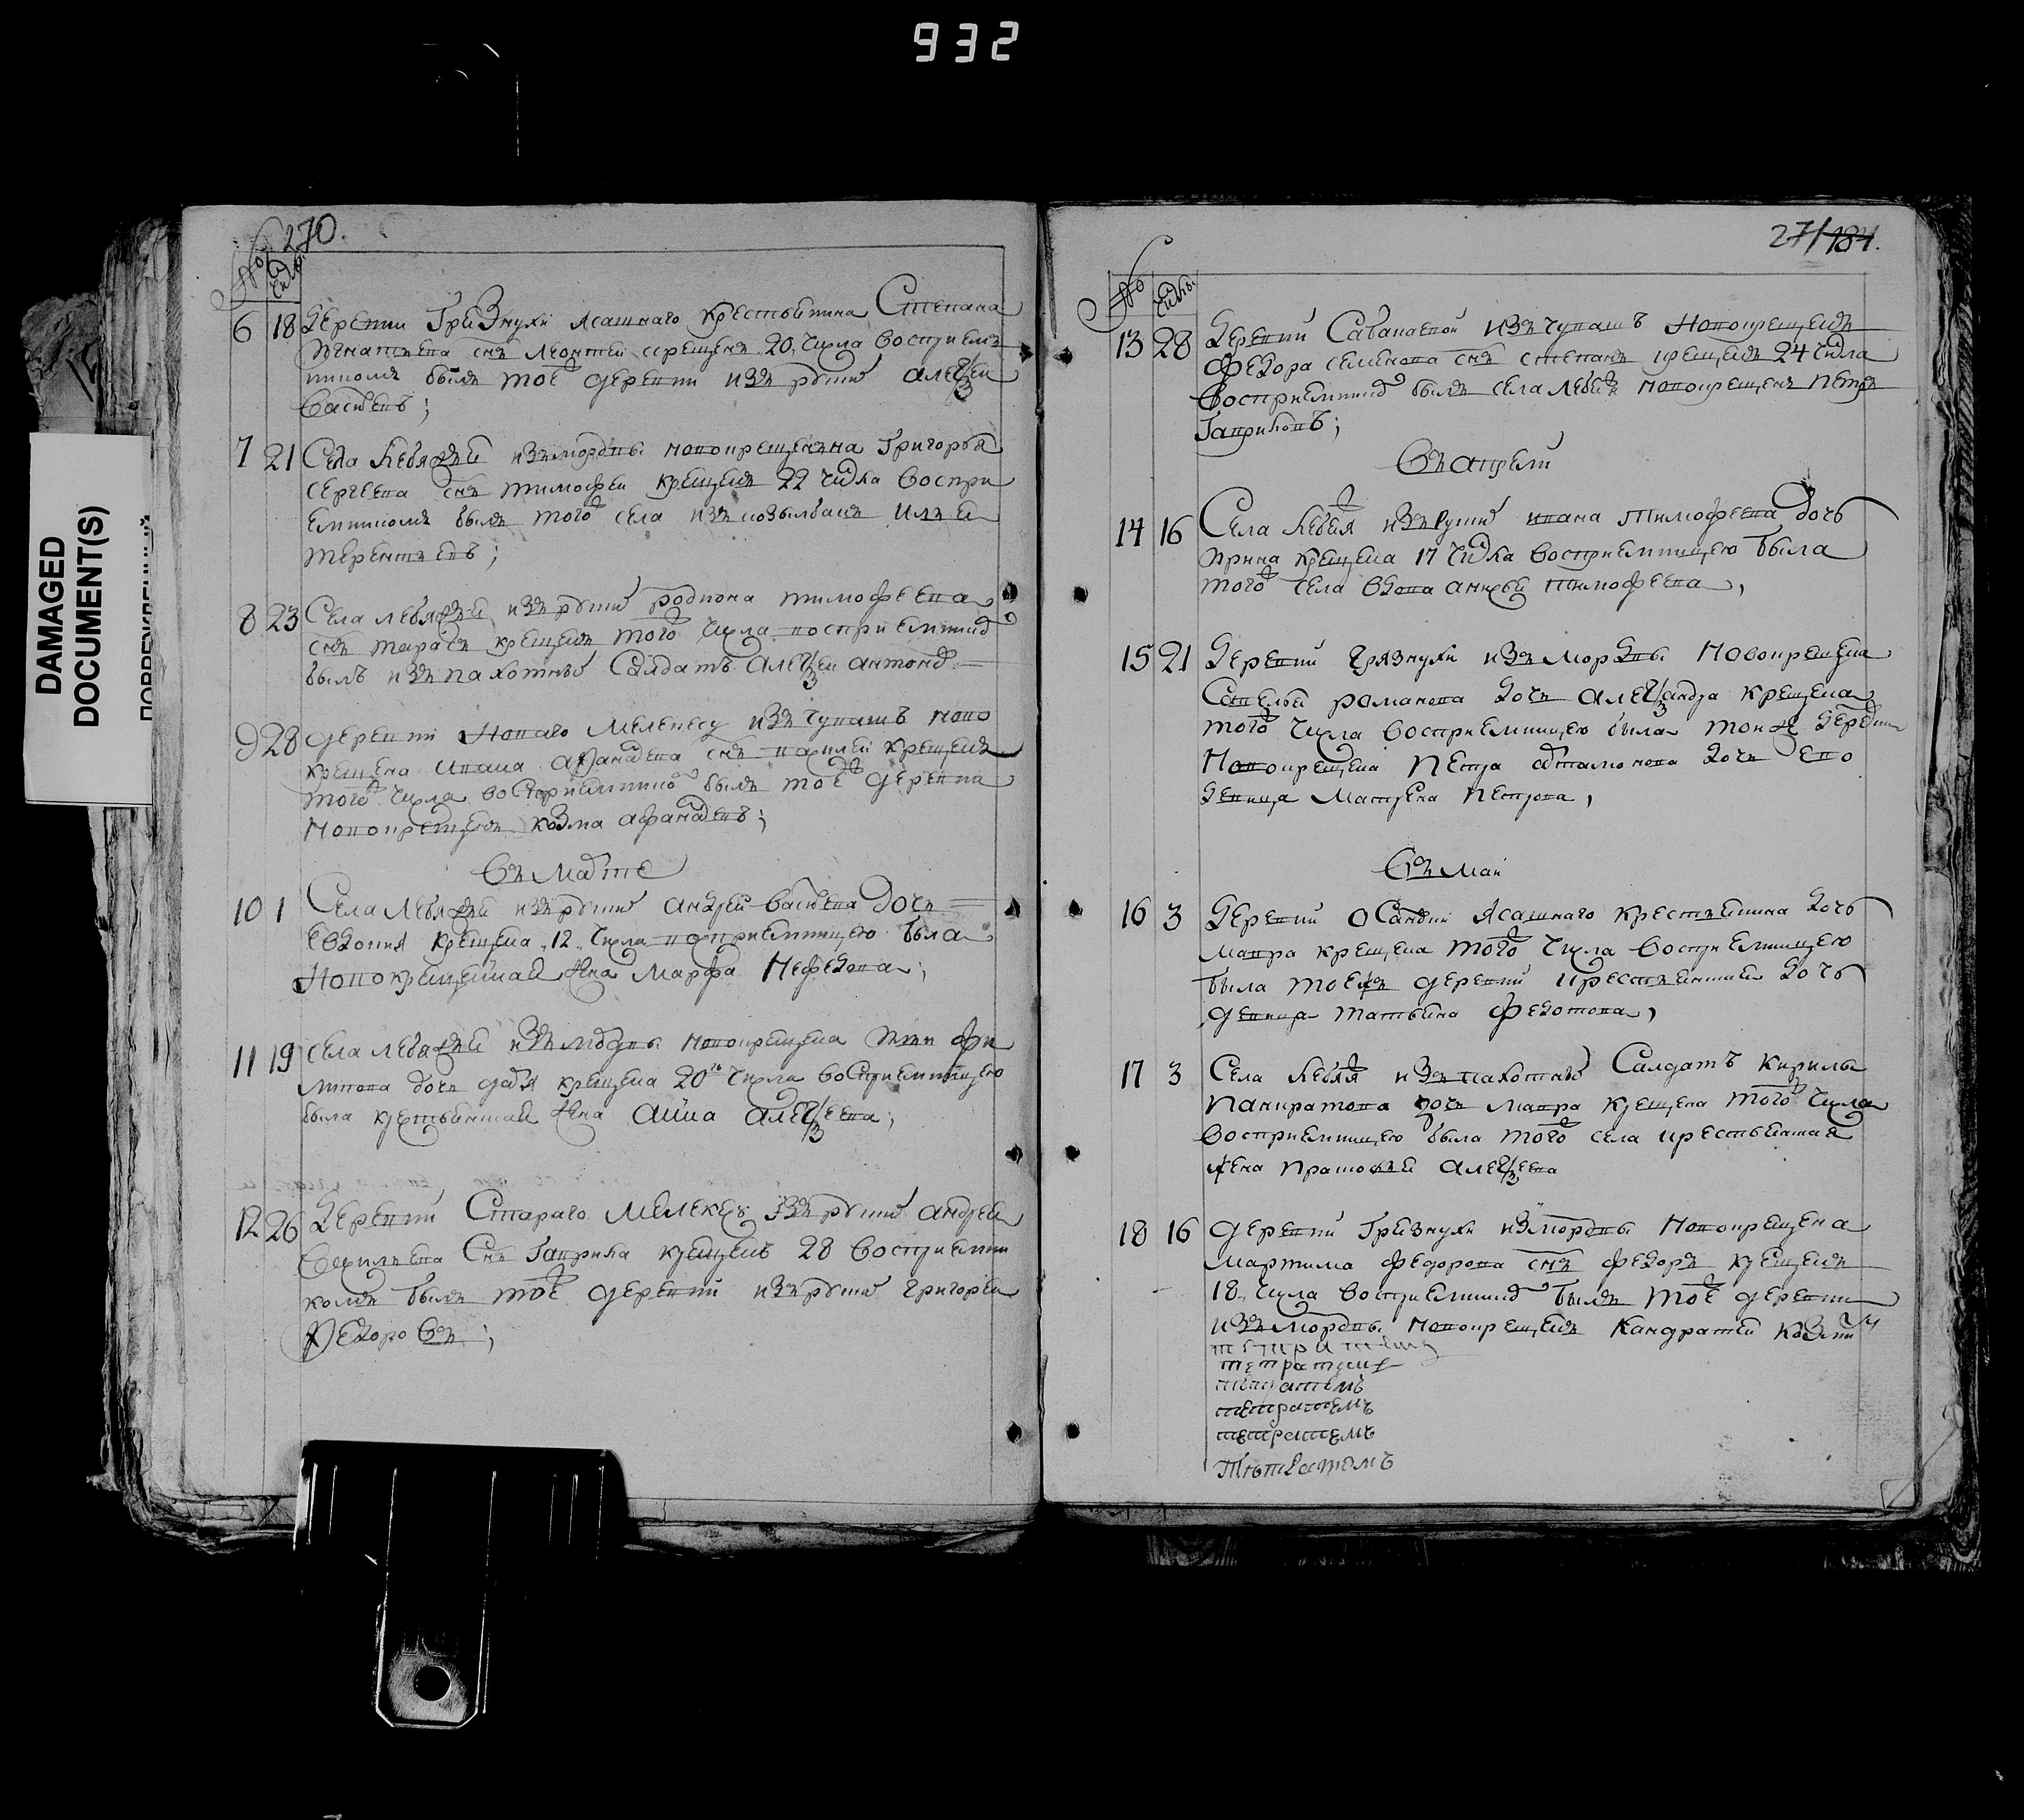 932
DAMAGED
DOCUMENT(S)
ПОВРЕЖДЕННЫЙ
№ числ. 270.
6 18 Деревни Грязнухи ясашнаго крестьянина Степана
Игнатьева снъ Леонтеи крещенъ 20, числа восприем
никомъ былъ тоѣ деревни изъ рускихъ Алеѯеи
Васильевъ;
7 21 Села Лебяжей изъ мордвы новокрещенина Григорья
Сергеева снъ Тимофеи крещенъ 22 числа воспри
емникомъ былъ того села
Терентьевъ;
8 23 Села Лебяжей изъ рускихъ Родиона Тимофеева
снъ Тарасъ крещенъ того числа восприемником
былъ изъ пахотныхъ Салдатъ Алеѯеи Антонов
9 28 деревни Новаго Мелекесу изъ чувашъ ново
крещена Ивана Афанасева снъ крещенъ
того числа восприемникомъ былъ тоѣ деревни
новокрещенъ Козма Афанасевъ;
Въ Марте
10 1 Села Лебяжей изъ рускихъ Андрея Васильева дочь
Евдокия крещена 12 числа восприемницею была
новокрещенная жена Марфа Нефедова;
11 19 Села Лебяжей изъ мордвы новокрещена Фи
липова дочь Дарья крещена 20го числа восприемницею
была крестьянская жена Анна Алеѯеева;
12 26 Деревни Стараго Мелекесу изъ рускихъ Андрея
Васильева Снъ Гаврила крещенъ 28 восприемни
комъ былъ тоѣ деревни изъ рускихъ Григореи
Федоровъ;
27/184.
№ числы
13 28 Деревни Сабакаевой изъ чувашъ новокрещена
Федора Семенова снъ Степанъ крещенъ 24 числа
восприемником былъ села Лебяж новокрещенъ Петръ
Гавриловъ;
Въ апрели
14 16 Села Лебяж изъ руских Ивана Тимофеева дочь
Ирина крещена 17 числа восприемницею была
того села вдова Тимофеева,
15 21 Деревни Грязнухи изъ мордвы новокрещена
Савелья Романова дочь Алеѯандра крещена
того числа восприемницею была тоя же деревни
новокрещена Петра Артамонова дочь ево
девица Матрена Петрова,
Въ Маи
16 3 Деревни ясашнаго крестьянина дочь
Мавра крещена того числа восприемницею
была тоежъ деревни крестьянская дочь
девица Татьяна Федотова,
17 3 Села Лебяж изъ пахотных Салдатъ Кирилы
Панкратова дочь Мавра крещена того числа
восприемницею была того села крестьянская
жена Алеѯеева
18 16 Деревни Грязнухи изъ мордвы новокрещена
Мартина Федорова снъ Федоръ крещенъ
18, числа восприемником былъ тоѣ деревни
изъ мордвы новокрещенъ Кандратей Козмин